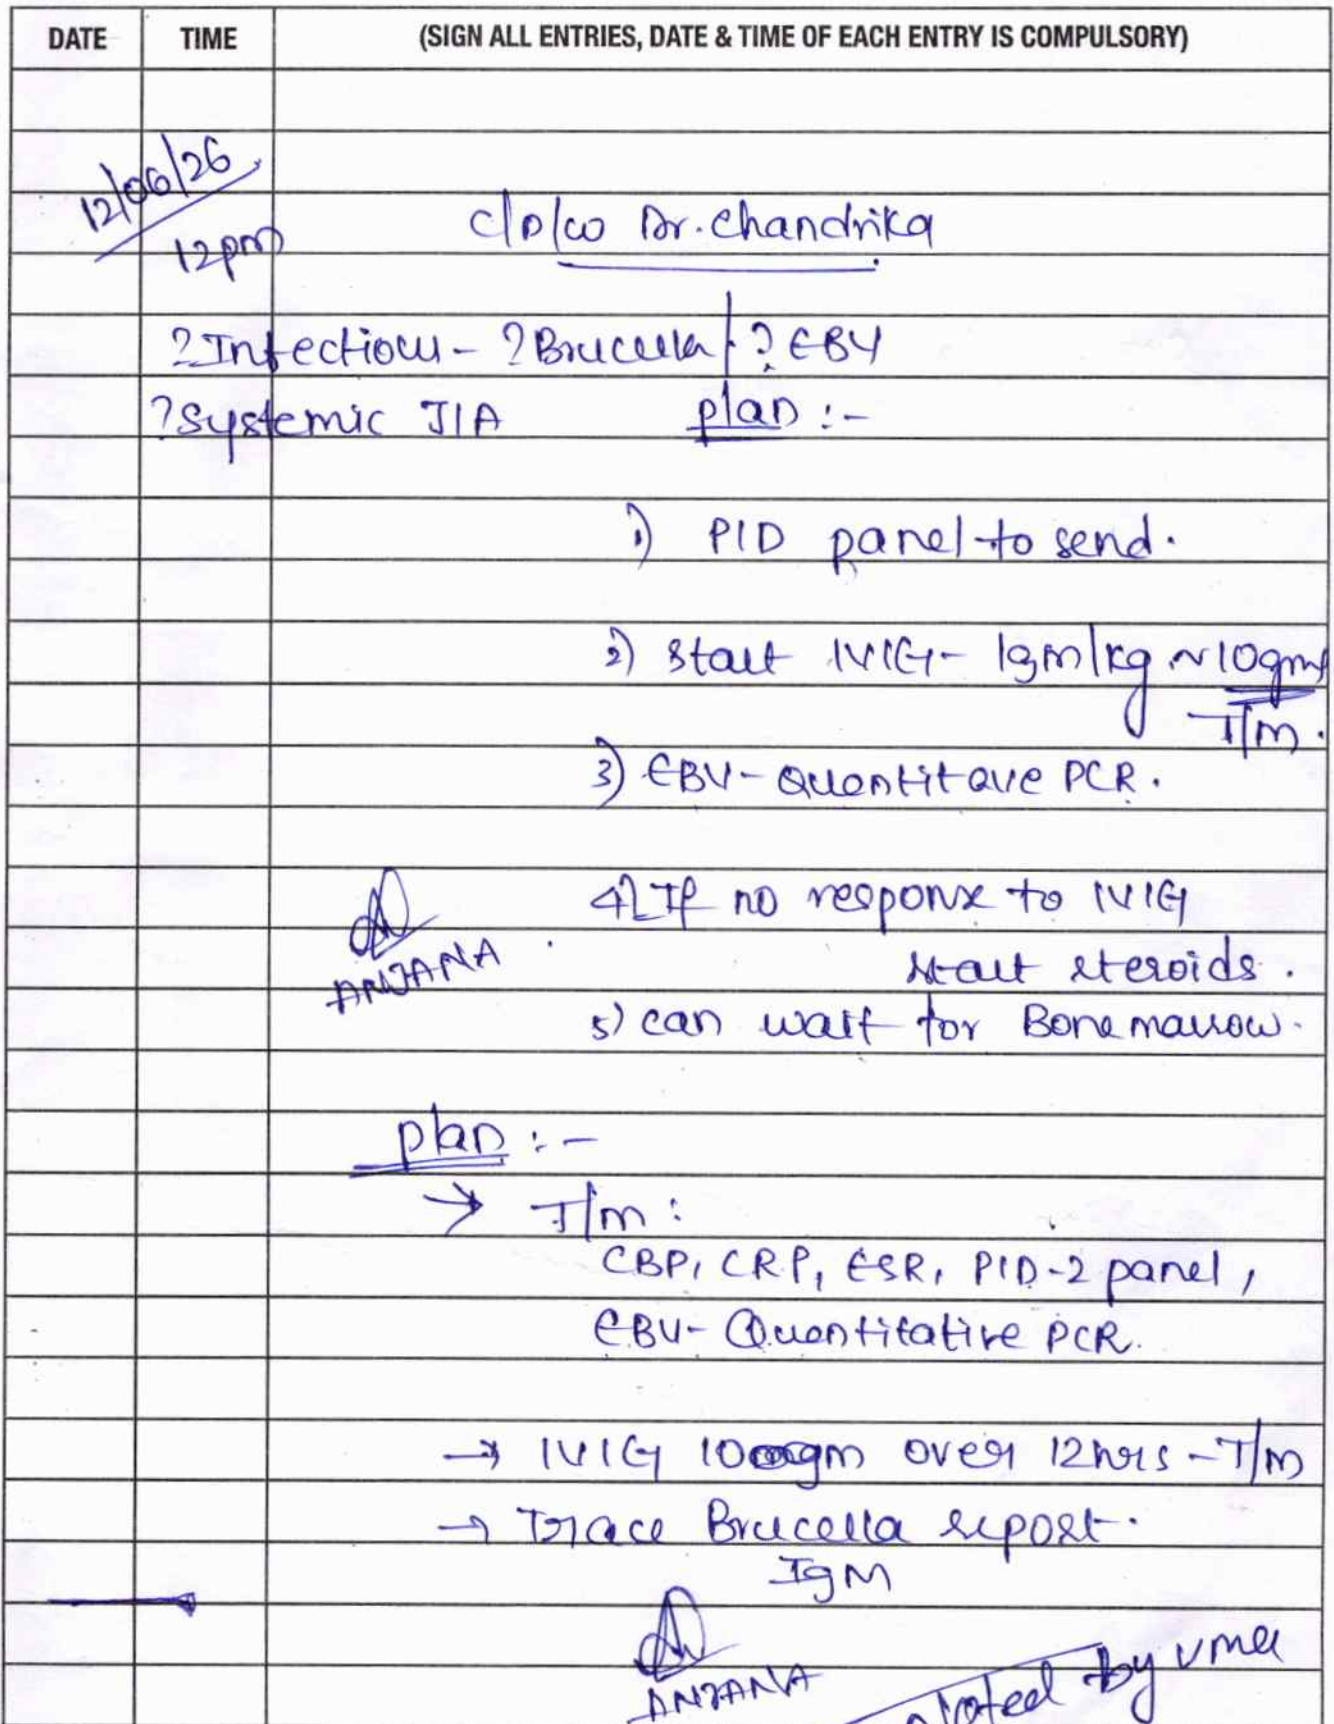 DATE TIME (SIGN ALL ENTRIES, DATE & TIME OF EACH ENTRY IS COMPULSORY)
12/06/26
12pm
c/D/w Dr. Chandrika
?Infectious - ?Brucella / ? EBV
?Systemic JIA plan :-
1) PID panel to send.
2) Start IVIG - 1gm/kg ~10gms
T/m.
3) EBV - Quentitave PCR.
4) If no response to IVIG
start steroids.
ANJANA
5) can wait for Bone marrow.
plan :-
→ T/m :
CBP, CRP, ESR, PID-2 panel,
EBV- Quantitative PCR.
→ IVIG 10gm over 12hrs - T/m
→ Trace Brucella report.
IgM
ANJANA
Noted by uma